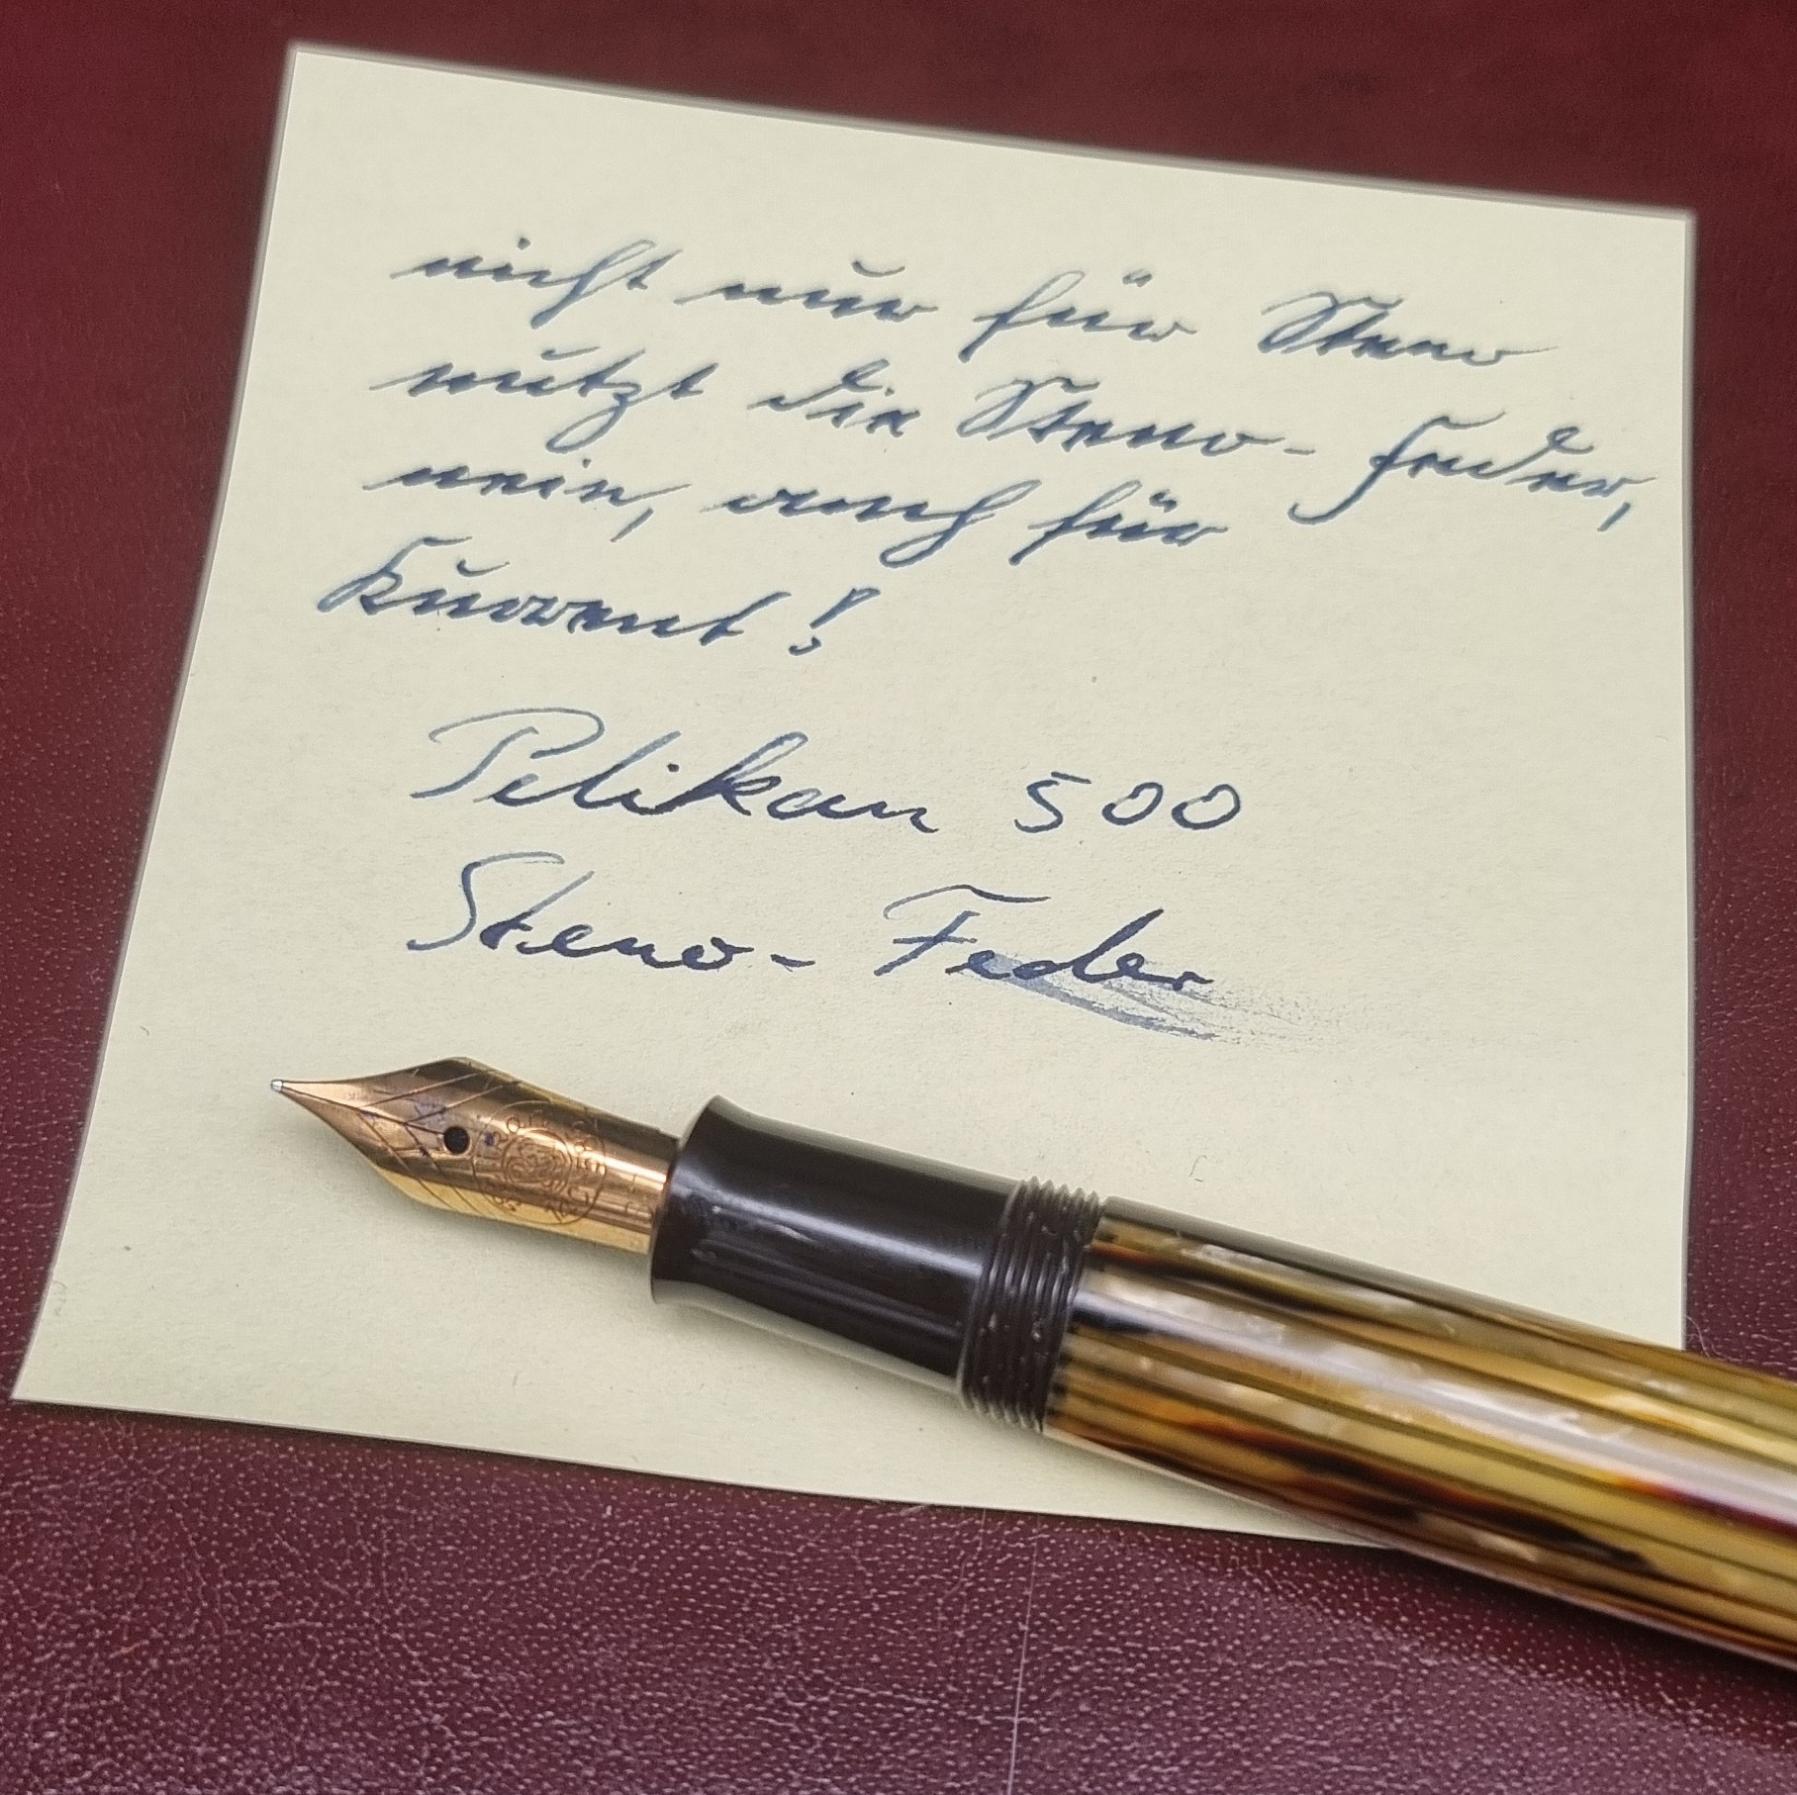 nicht nur für Steno
nutzt die Steno-Feder,
nein, auch für
Kurrent!
Pelikan 500
Steno-Feder